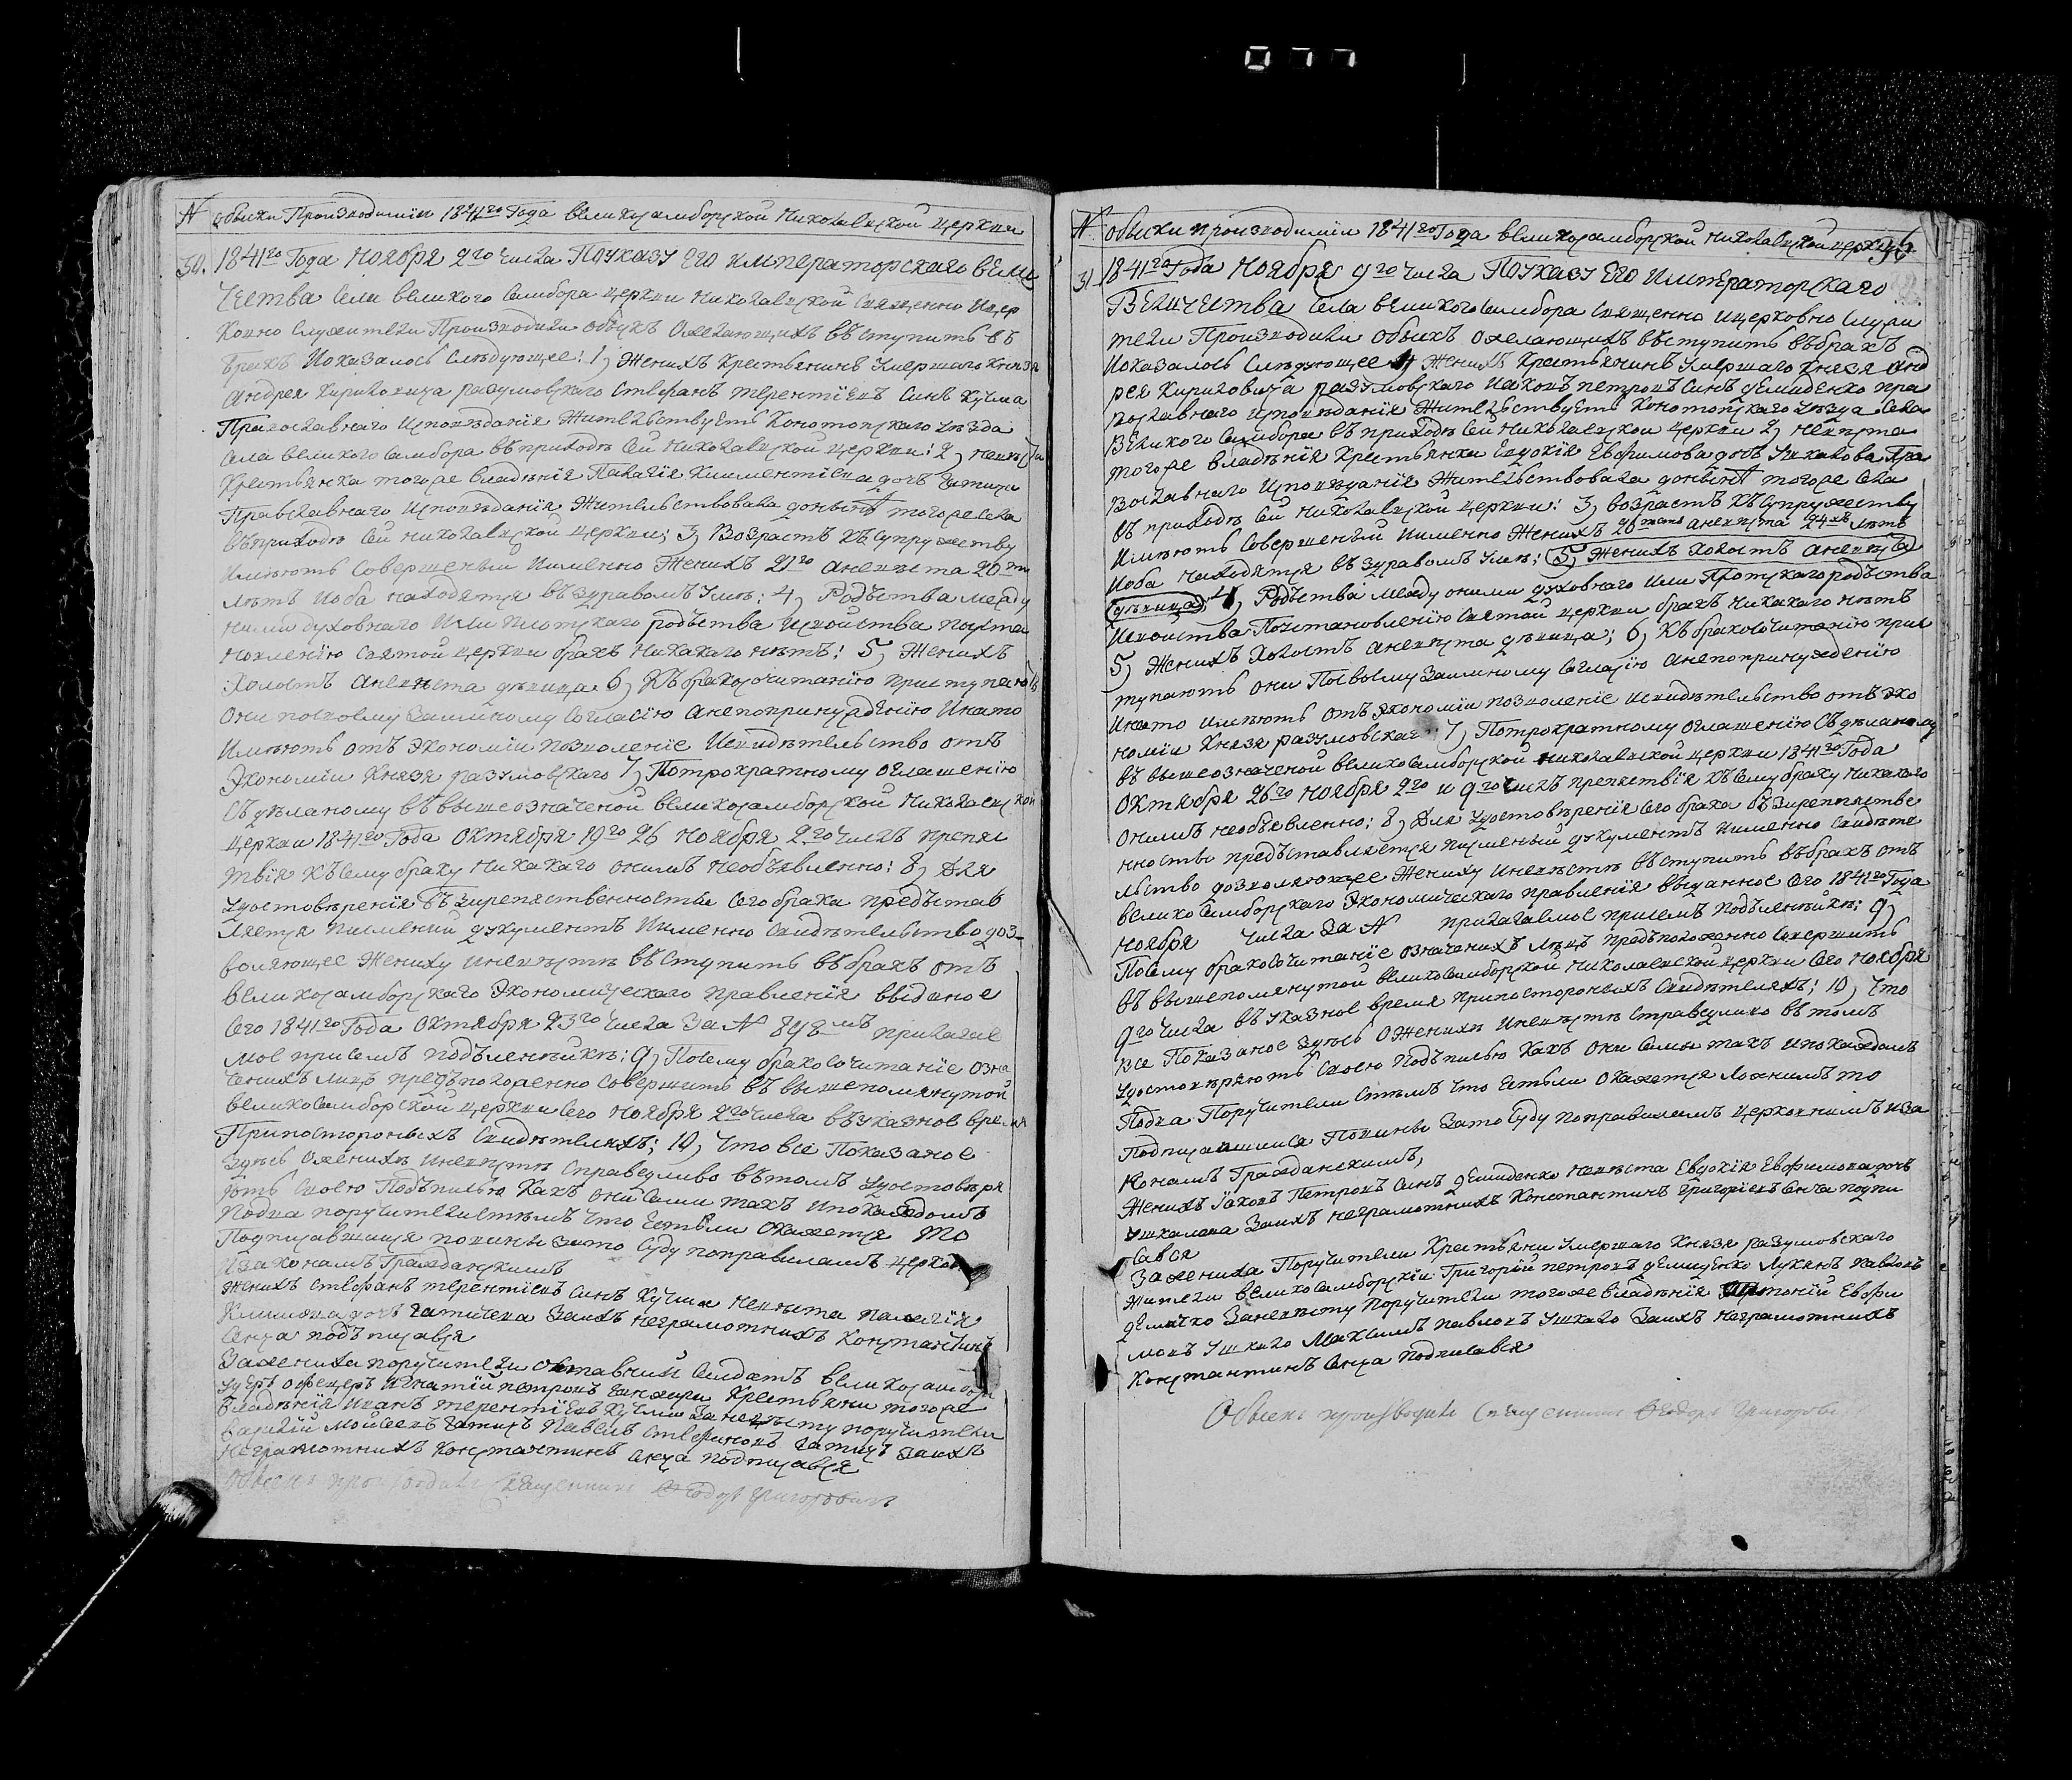 077
№ обыски Производимiи 1841го Года великосамборской Николаевской церкви
30. 1841го Года Ноября 2го числа По указу Его императорскаго вели
чества Села великого Самбора церкви Николаевской Священно ицер
ковно служители Производили обыскъ ожелающихъ въступить въ
бракъ Иоказалось Слѣдующее: 1, Женихъ крестьянинъ умершаго князя
Андрея кириловича разумовскаго Стефанъ терентіевъ Синъ кучма
Православнаго исповѣданія Жительствуетъ конотопскаго уѣзда
Села великого Самбора въприходѣ Сей Николаевской церкви: 2, невѣста
крестьянка тогоже владѣнія Палагія
Православнаго исповѣданія Жительствовала донынѣ тогоже Села
въприходѣ Сей николаевской церкви: 3, Возрастъ къ Супружеству
имѣютъ Совершеный Именно Женихъ 21го аневѣста 20ти
лѣтъ Иоба находятся въ здравомъ умѣ: 4, Родъства между
ними духовнаго Или плотскаго родъства исвойства поуста
новленію Святой церкви бракъ никакаго нѣтъ: 5, Женихъ
Холостъ аневѣста дѣвица. 6, къ бракосочитанію приступаютъ
они посвоему взаимному Согласію анепопринужденію инато
имѣютъ отъ экономіи позволеніе исвидѣтельство отъ
экономіи князя разумовскаго 7, Потрократному оглашенію
Съдѣланому въвышеозначеной великосамборской Николаевской
церкви 1841го Года Октября 19го 26 Ноября 2го числъ препят
твія къ Сему браку никакаго онимъ необъявленно: 8, Для
удостовѣренія бъзпрепятственности Сего брака предъстав
ляется писмений документъ Именно Свидѣтельство доз-
воляющее Жениху иневѣстѣ въступить въбракъ отъ
великосамборскаго экономическаго правленія выданое
Сего 1841го Года Октября 23го числа за № 898мъ прилагае
мое присемъ подъленѣйкѣ: 9, Посему бракосочитаніе озна
ченихъ лицъ предъположенно Совершить въ вышепомянутой
великосамборской церкви Сего Ноября 2го числа въуказное время
Припостороньхъ Свидѣтеляхъ; 10, что все Показаное
здѣсь оженихѣ иневѣстѣ Справедливо въ томъ удостовѣря
ютъ Своею Подъписью какъ они Сами такъ ипокаждомъ
Подва поручители Стѣмъ что Естьли окажется то
Подписавшиися повины зато Суду поправиламъ церков
изаконамъ Гражданскимъ
Женихъ Стефанъ терентіевъ Синъ кучма невѣста палагія
дочъ заихъ неграмотнихъ константинъ
Сенча подъписався
Заженихи поручители отставний Солдатъ великосамбор
Игнатій петровъ крестьяни тогоже
владѣнія иванъ терентіевъ кучма заневѣсту поручители
василій моисеевъ Павелъ Стефановъ заихъ
неграмотнихъ константинъ Сенча подписався
Обыскъ производилъ Священникъ Феодоръ Григоровичъ
№ обыски производимiи 1841го Года великосамборской николаевской церкви 96
31. 1841го Года Ноября 9го числа По указу Его императорскаго
Величества Села великого Самбора Священно ицерковно Служи
тели Производили обыскъ ожелающихъ въступить въбракъ
Иоказалось Слѣдующее 1, Женихъ крестьянинъ умершаго князя Анд
рея кириловича разумовскаго Иаковъ петровъ Синъ демиденко пра
вославнаго исповѣданія Жительствуетъ конотопскаго уѣзда Села
великого Самбора въ приходѣ Сей Николаевской церкви 2, невѣста
тогоже владѣнія крестьянка Евдокія Евфимова дочъ Ушкалова пра
вославнаго исповѣданія Жительствовала донынѣ тогоже Села
въ приходѣ Сей николаевской церкви: 3, возрастъ къ Супружеству
имѣютъ Совершений Именно Женихъ 26 аневѣста 24хъ лѣтъ
Иоба находятся въ здравомъ умѣ; 5, Женихъ холостъ аневѣста
дѣвица 4, Родъства между оними духовнаго или плотскаго родъства
исвойства Поустановленію Святой церкви бракъ никакаго нѣтъ
5, Женихъ холостъ аневѣста дѣвица; 6, къ бракосочитанію прис
тупаютъ они Посвоему взаимному Согласію анепопринужденію
инато имѣютъ отъ экономіи позволеніе исвидѣтельство отъ эко
номіи князя разумовскаго 7, Потрократному оглашенію Съдѣланому
въ вышеозначеной великосамборской николаевской церкви 1841го Года
Октября 26го Ноября 2го и 9го числъ препятствія къ Сему браку никакаго
онимъ необъявленно: 8, Для удостовѣренія Сего брака бъзпрепятстве
нности предъставляется писменый документъ именно Свидѣте
льство дозволяющее Жениху иневѣстѣ въступить въбракъ отъ
великосамборскаго экономическаго правленія выданное Сего 1841го Года
Ноября числа за № прилагаемое присемъ подъленѣйкѣ; 9,
Посему бракосочитаніе означенихъ лицъ предъположенно Совершить
въ вышепомянутой великосамборской николаевской церкви Сего ноября
9го числа въ указное время припостороньхъ Свидѣтеляхъ; 10, что
все Показаное здѣсь оженихѣ иневѣстѣ Справедливо въ томъ
удостовѣряютъ Своею Подъписью какъ они Сами такъ ипокаждомъ
Подва Поручители Стѣмъ что Естьли окажется ложнимъ то
Подписавшиися Повины зато Суду поправиламъ церковнимъ иза
конамъ Гражданскимъ,
Женихъ Іаковъ Петровъ Синъ демиденко невѣста Евдокія Евфимова дочъ
Ушкалова заихъ неграмотнихъ константинъ Григоріевъ Сенча подпи
сався
Зажениха Поручители крестьяни умершаго князя разумовскаго
Жители великосамборскіи Григорій петровъ демиденко Лукянъ павловъ
заневѣсту поручители тогоже владѣнія Антоній Евфи
мовъ ушкало Максимъ павловъ ушкало заихъ неграмотнихъ
константинъ Сенча подписався
Обыскъ производилъ Священникъ Феодоръ Григорови